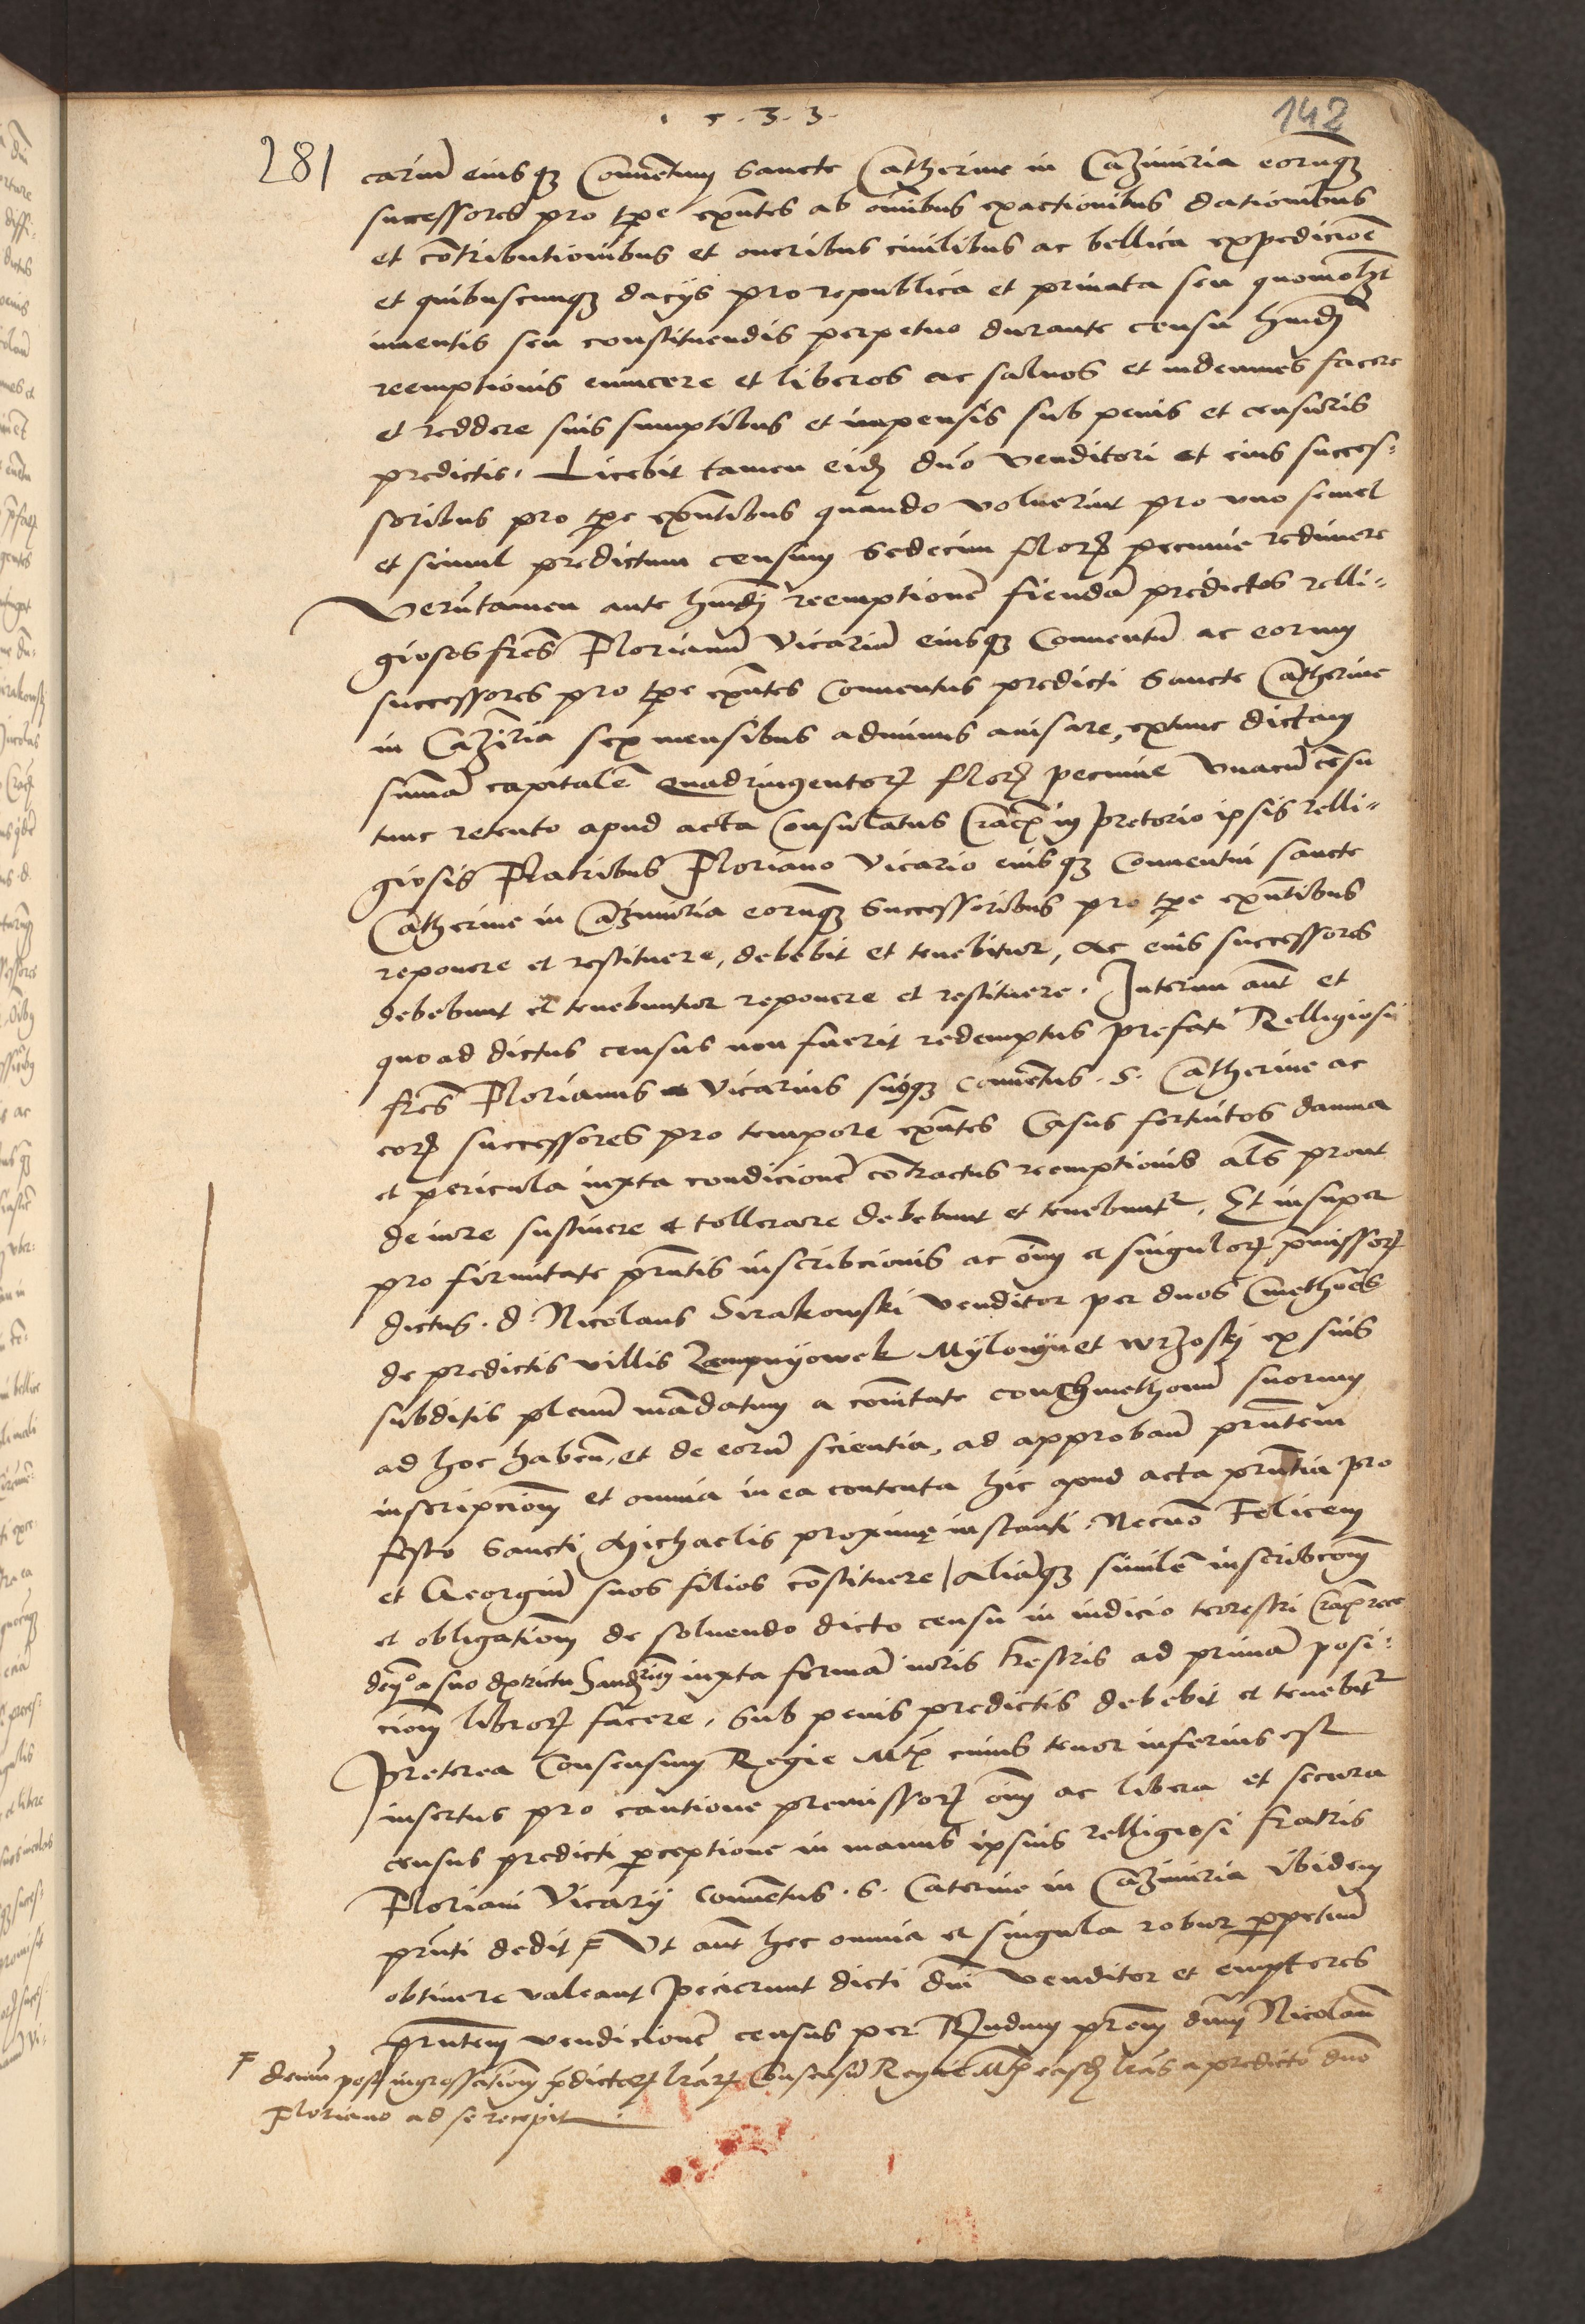 1 5 . 3 . 3 .
142
281
carium eiusq₃ Conuẽtum Sancte Catherine in Cazimiria eorumq₃
successores pro tp̃e exñtes ab om̃ibus exactionibus dationibus
et cõtributionibus et oneribus ciuilibus ac bellica expedicioẽ
et quibuscunq₃ dacijs pro republica et priuata seu quomolʒt
inuentis seu constituendis perpetuo durante censu hm̃di
reemptionis emittere et liberos ac saluos et indemnes facere
et reddere suis sumptibus et impensis sub penis et censuris
predictis. Licebit tamen eidẽ dño venditori et eius succes:
soribus pro tp̃e exñtibus quando voluerint pro vno semel
et simul predictum censum sedecim florẽ pecunie redimere
Verũtamen ante hm̃di reemptionẽ fiendã predictos relli-
giosos frẽs Florianũ Vicariũ eiusq₃ Conuentũ ac eorum
successores pro tp̃e exñtes Conuentus predicti Sancte Catherine
in Cazĩria sex mensibus adminus auisare, extunc dictam
sum̃ã capitalẽ quadringentorẽ florẽ pecunie vnacũ cẽsu
tunc retento apud acta Consulatus Cracoᷤ in pretorio ipsis relli-
giosis Fratribus Floriano Vicario eiusq₃ Conuentui sancte
Catherine in Cazimiria eorumq₃ successoribus pro tp̃e exñtibus
reponere et restituere, debebit et tenebitur, Ac eius successores
debebunt et tenebuntur reponere et restituere. Interim aũt et
quoad dictus census non fuerit redemptus prefati Relligiosi
frẽs Florianus Vicarius suusq₃ Conuẽtus . S . Catherine ac
eorẽ successores pro tempore exñtes Casus fortuitos damna
et pericula iuxta condicionẽ cõtractus reemptionis als̃ prout
de iure sustinere et tollerare debebunt et tenebuntʳ. Et insuper
pro firmitate prñtis inscribcionis ac om̃ et singulorẽ pmissorẽ
dictus . d . Nicolaus Sirakowski venditor per duos Cmethões
de predictis villis Zempnyowek Mylowyn et Wrzosky ex suis
subditis plenũ mãdatum a com̃itate Cmethonũ suorum
ad hoc habeñ. et de eorũ scientia, ad approbañ prñtem
inscripcioñ et omnia in ea contenta hic apud acta prñtia pro
festo Sancti Michaelis proxime instanti. Necnõ Felicem
et Georgiũ suos filios cõstituere / Aliãq₃ similẽ inscribcioñ
et obligatioñ de soluendo dicto censu in iudicio terrestri Crac̃
a suo districtu iuxta formã iuris tr̃estris ad primã posi:
cioñ librorẽ facere, Sub penis predictis debebit et tenebitʳ
Preterea Consensum Regie Mtis̃ cuius tenor inferius est
insertus pro cautione premissorẽ om̃ ac libera et secura
census predicti pceptione in manus ipsius relligiosi fratris
Floriani Vicarij Conuẽtus . S . Caterine in Cazimiria ibidem
prñti dedit F Vt aũt hec omnia et singula robur ppetuũ
obtinere valeant Pecierunt dicti dñi venditor et emptores
prñtem vendicionẽ census per Rndum prẽm dñm Nicolaũ
F demũ post ingrossatioñ p̃dictarẽ lr̃arẽ Consensũ Regie Mtis̃ easdẽ lr̃as a predicto dño
Floriano ad se recepit